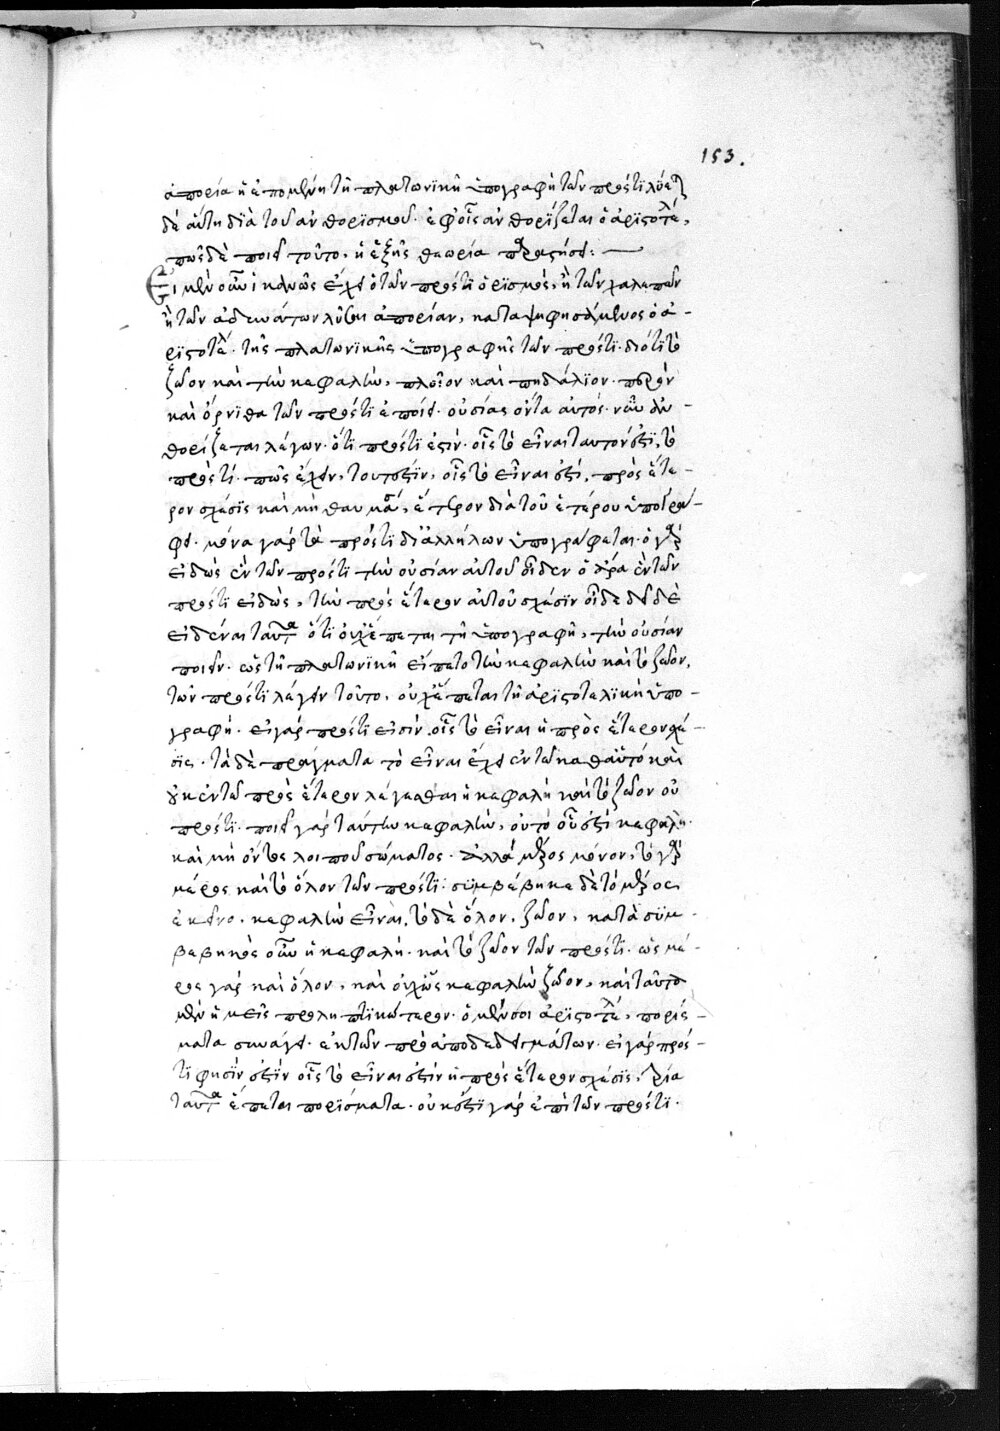 153.
ἀπορία ἡ ἑπομένη τῇ πλατωνικῇ ὑπογραφῇ τῶν πρός τι λύεται
δὲ αὕτη διὰ τοῦ ἀνθορισμοῦ. ἐφ' οἷς ἀνθορίζεται ὁ ἀριστοτέλης,
πῶς δὲ ποιεῖ τοῦτο, ἡ ἑξῆς θεωρία παραστήσει:
Εἰ μὲν οὖν ἱκανῶς ἔχει ὁ τῶν πρός τι ὁρισμὸς, ἢ τῶν χαλεπῶν
ἢ τῶν ἀδυνάτων λῦσαι ἀπορίαν, καταψηφησάμενος ὁ ἀ-
ριστοτέλης τῆς πλατωνικῆς ὑπογραφῆς τῶν πρός τι. διότι τὸ
ζῶον καὶ τὴν κεφαλὴν, πλοῖον καὶ πηδάλιον. πτερὸν
καὶ ὄρνιθα τῶν πρός τι ἐποίει. οὐσίας ὄντα αὐτός. νῦν ἀν-
θορίζεται λέγων. ὅτι πρός τι ἐστίν. οἷς τὸ εἶναι ταυτόν ἐστι, τῷ
πρός τί πως ἔχειν, τουτέστιν, οἷς τὸ εἶναί ἐστι, πρὸς ἕτε-
ρον σχέσις καὶ μὴ θαυμάσῃς, ἕτερον διὰ τοῦ ἑτέρου ὑπογρά-
φει. μόνα γὰρ τὰ πρός τι δι' ἀλλήλων ὑπογράφεται. ὁ γὰρ
εἰδὼς ἓν τῶν πρός τι τὴν οὐσίαν αὐτοῦ οἶδεν ὁ ἄρα ἓν τῶν
πρός τι εἰδὼς, τὴν πρὸς ἕτερον αὐτοῦ σχέσιν οἶδε δεῖ δὲ
εἰδέναι ταῦτα ὅτι οὐχ ἕπεται τῇ ὑπογραφῇ, τὴν οὐσίαν
ποιεῖν. ὡς τῇ πλατωνικῇ εἵπετο τὴν κεφαλὴν καὶ τὸ ζῶον,
τῶν πρός τι λέγειν τοῦτο, οὐχ ἕπεται τῇ ἀριστοτελικῇ ὑπο-
γραφῇ. εἰ γὰρ πρός τι εἰσὶν οἷς τὸ εἶναι ἡ πρὸς ἕτερον σχέ-
σις. τὰ δὲ πράγματα τὸ εἶναι ἔχει ἐν τῷ καθ' αὑτὸ καὶ
οὐκ ἐν τῷ πρὸς ἕτερον λέγεσθαι ἡ κεφαλὴ καὶ τὸ ζῶον οὐ
πρός τι. ποιεῖ γὰρ ταύτην κεφαλὴν, οὐ τὸ οὗ ἐστὶ κεφαλή.
καὶ μὴ ὄντος λοιποῦ σώματος. ἀλλὰ μέρος μόνον, τὸ γὰρ
μέρος καὶ τὸ ὅλον τῶν πρός τι. συμβέβηκε δὲ τὸ μέρος
ἐκεῖνο. κεφαλὴν εἶναι, τὸ δὲ ὅλον, ζῶον, κατὰ συμ-
βεβηκὸς οὖν ἡ κεφαλὴ. καὶ τὸ ζῶον τῶν πρός τι. ὡς μέ-
ρος γὰρ καὶ ὅλον, καὶ οὐχ ὡς κεφαλὴν ζῶον, καὶ ταῦτα
μὲν ἡμεῖς προληπτικώτερον. ὁ μέντοι ἀριστοτέλης, πορίσ-
ματα συνάγει. ἐκ τῶν προαποδεδειγμάτων. εἰ γὰρ πρός
τι φησίν ἐστιν οἷς τὸ εἶναί ἐστιν ἡ πρὸς ἕτερον σχέσις, τρία
ταῦτα ἕπεται πορίσματα. οὐκ ἔστι γὰρ ἐπὶ τῶν πρός τι.